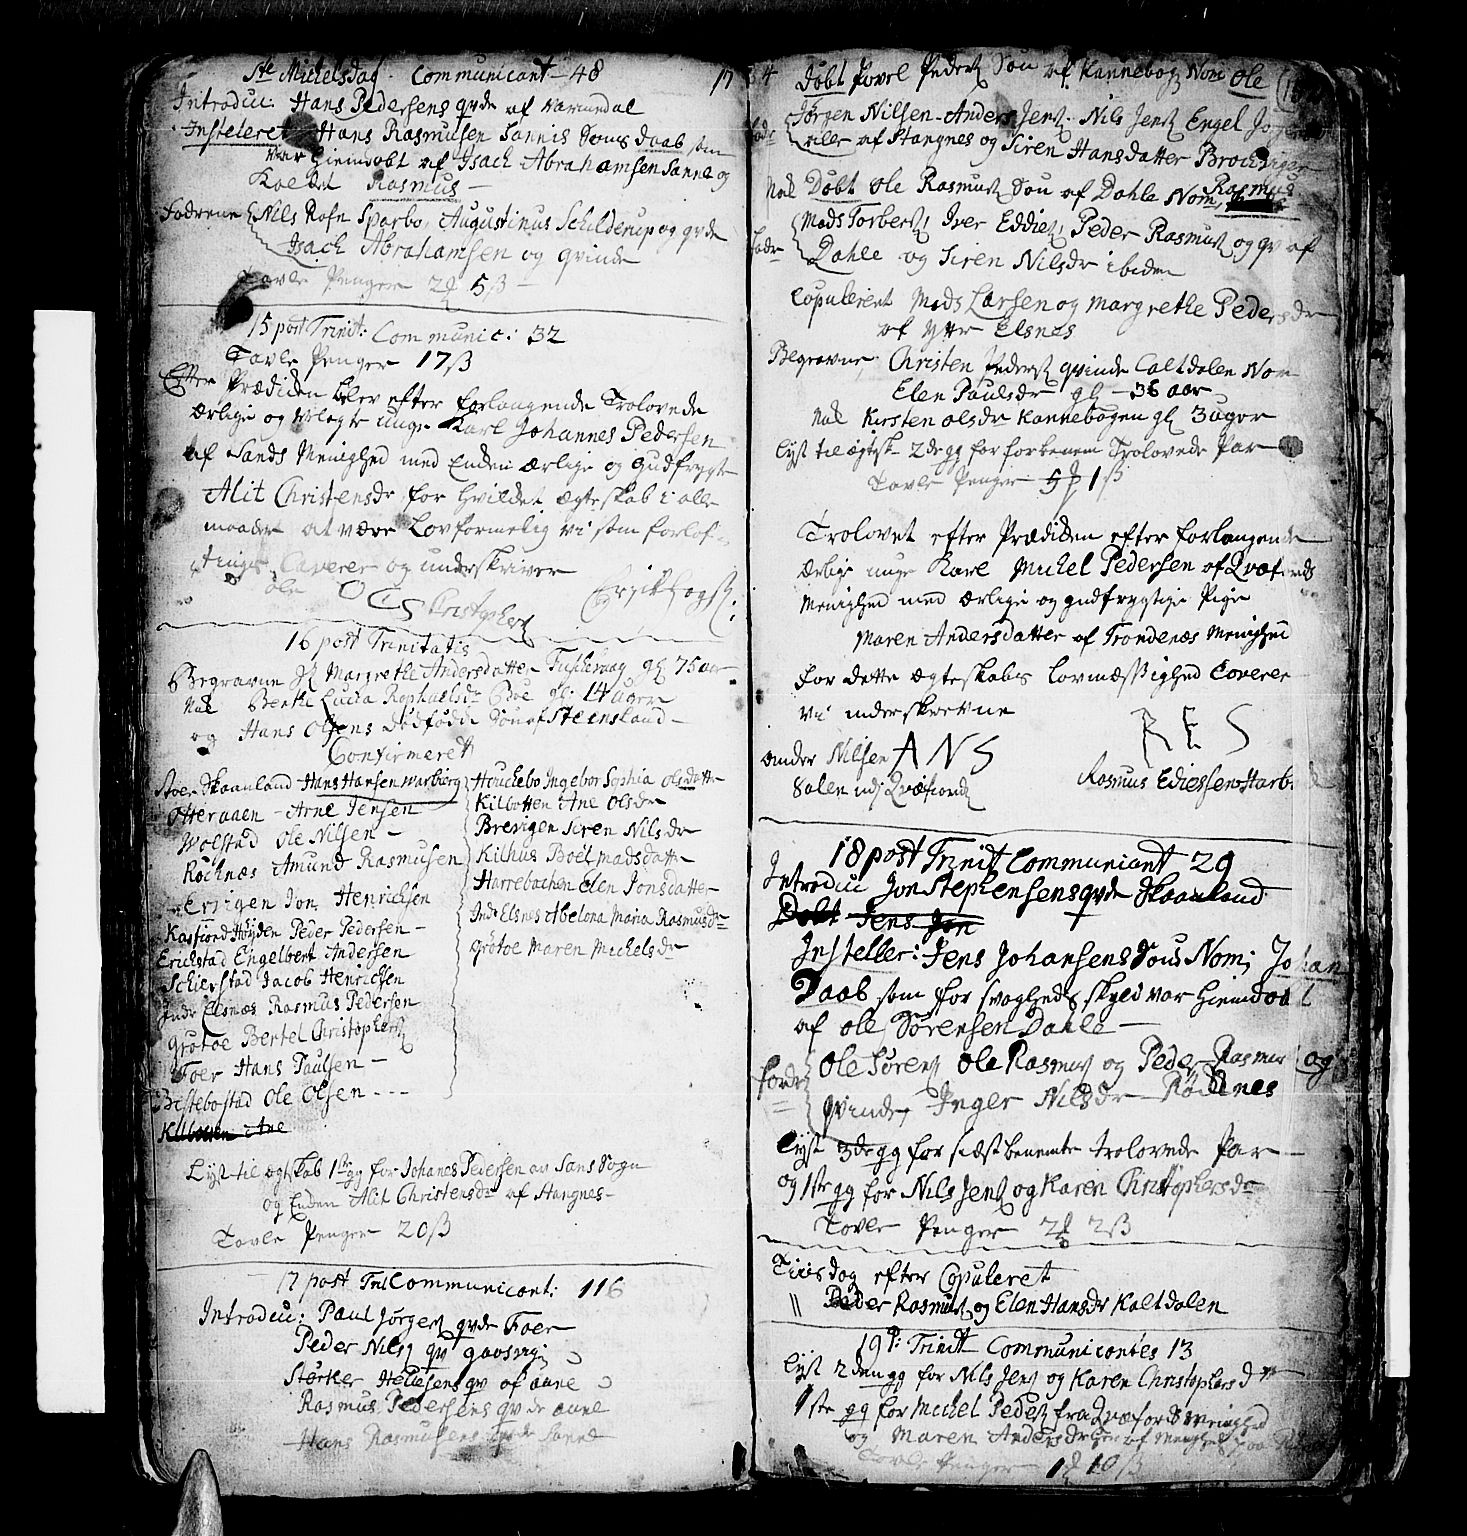 Ste Michelsdag. Communicant 48
17
Introdu: Hans Pedersens qvde af
Insteleret Hans Rasmusen Sannes Søns Daab som
var hiemdøbt af Isach Abrahamsen Sanne og
Kaldet Rasmus
Fadrene Nils Rosn Sparbo, Augustinus Schilderup og qvde
Isach Abrahamsen og qvinde
Tavle Penger 5 ß
15 post Trinit: Communic: 32
Tavle Penger 17 ß
Efter Prædiken blev efter forlangende Trolovede
Ærlige og unge Karl Johannes Pedersen
af Sands Menighed med Enden ærlige og Gudfrygte
Alit Christensdr for hvildet ægteskab i alle
maader at være Lovformelig vi som forlof-
Caverer og underskriver
Ole O C S Kristophers
16 post Trinitatis
Begravne Margrethe Andersdatter gl 75 aar
Nok Berthe Lucia Raphaelsdr Boe gl: 14 uger
og Hans Olsens dødfødde Søn af Steensland
Confirmeret
Stoer Skaanland Hans Hansen Warburg
Otteraaen - Arne Jensen
Wolstad Ole Nilsen
Røchnæs Amund Rasmusen
Errigen Jon Henrichsen
Kasfiord Høyden Peder Pedersen
Erichstad Engelbert Andersen
Schierstad Jacob Henrichsen
Indr Elsnæs Rasmus Pedersen
Grøtøe Bertel Christophers
Foer Hans Paulsen
Bestebostad Ole Olsen
Kilbotten Ane
Houchebo Ingebor Sophia Olsdatter
Kilbotten Ane Olsdr
Brevigen Siren Nilsdr
Kilhus Boel Madsdatter
Harrebachen Elen Jonsdatter
Indr Elsnes Abelona Maria Rasmusdr
Grøtøe Maren Michelsdr
Lyst til ægteskab 1ste gg for Johanes Pedersen av Sans Sogn
og Enden Alit Christensdr af Stangnes
Tavle Penger 20 ß
17 post Tri Communicant: 116
Introdu: Paul Jørgens qvde Foer
Peder Nils qv Gaasvig
Størker Helliesens qv af Aune
Rasmus Pedersens qvde Aune
Hans Rasmusens qvde Sanne
Døbt Povel Peders Søn af Kannebog Nom Ole
Fadr Jørgen Nilsen Anders Jens. Nils Jens Engel
alle af Stangnes og Siren Hansdatter
Nok Døbt Ole Rasmus Søn af Dahle Nom, Rasmus
Fadr Mads Torbers, Iver Eddies, Peder Rasmus og qv af
Dahle og Siren Nilsdr ibiden
Copulerent Mads Larsen og Margrethe Pedersdr
af Ytr Elsnes
Begravne Christen Peders qvinde Caltdalen Nom
Elen Paulsdr gl - 36 aar
Nok Kirsten Olsdr Kannebogen gl 3 uger
Lyst til ægtesk 2de gg for forbenem Trolovede Par
Tavle Penger 1 ß
Trolovet efter Prædiken efter forlangende
Ærlige unge Karl Michel Pedersen af Qvæfiords
Menighed med ærlige og gudfrygtige Pige
Maren Andersdatter af Trondenæs Menighed
for dette ægteskabs lovmæssighed Coverer
vi underskrevne
Ander Nilsen A N S
R E S
Rasmus Ediessen
18 post Trinit Communicant 29
Introdu Jon Stephensens qvde Skaanland
Døbt Jens Jon
Insteller: Jens Johansens Søns Nom; Johan
Daab som for svagheds skyld var hiemdøbt
af Ole Sørensen Dahle
Fadr Ole Sørens Ole Rasmus og Peder Rasmus og
qvinde, Inger Nilsdr Rødenes
Lyst 3de gg for sidst benemte trolovede Par
og 1ste gg for Nils Jens og Karen Christophersdr
Tavle Penger 2 ß
Tiisdag efter Copuleret
Peder Rasmus og Elen Hansdr Kaltdalen
19 P: Trinit Communicantes 13
Lyst 2den gg for Nils Jens og Karen Christophersdr
1ste gg for Michel Peders fra Qvæfiords Menighed
og Maren Andersdr
Tavle Penger 10 ß